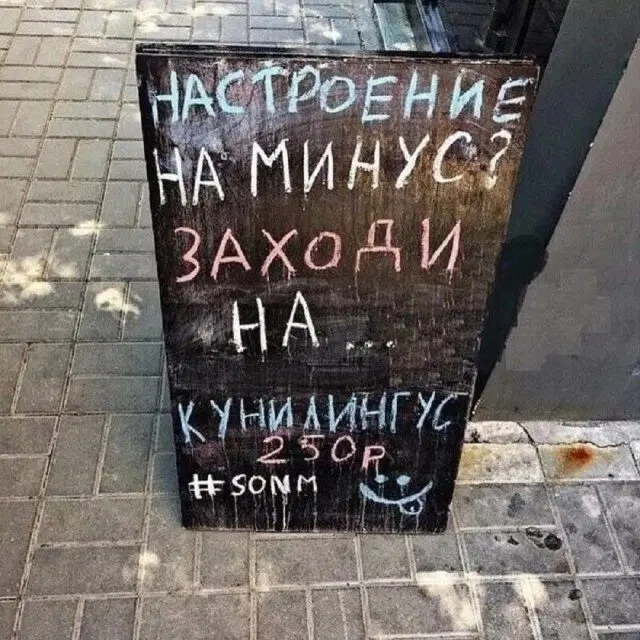 НАСТРОЕНИЕ
НА МИНУС?
ЗАХОДИ
НА ...
КУНИЛИНГУС
250р
#SONM